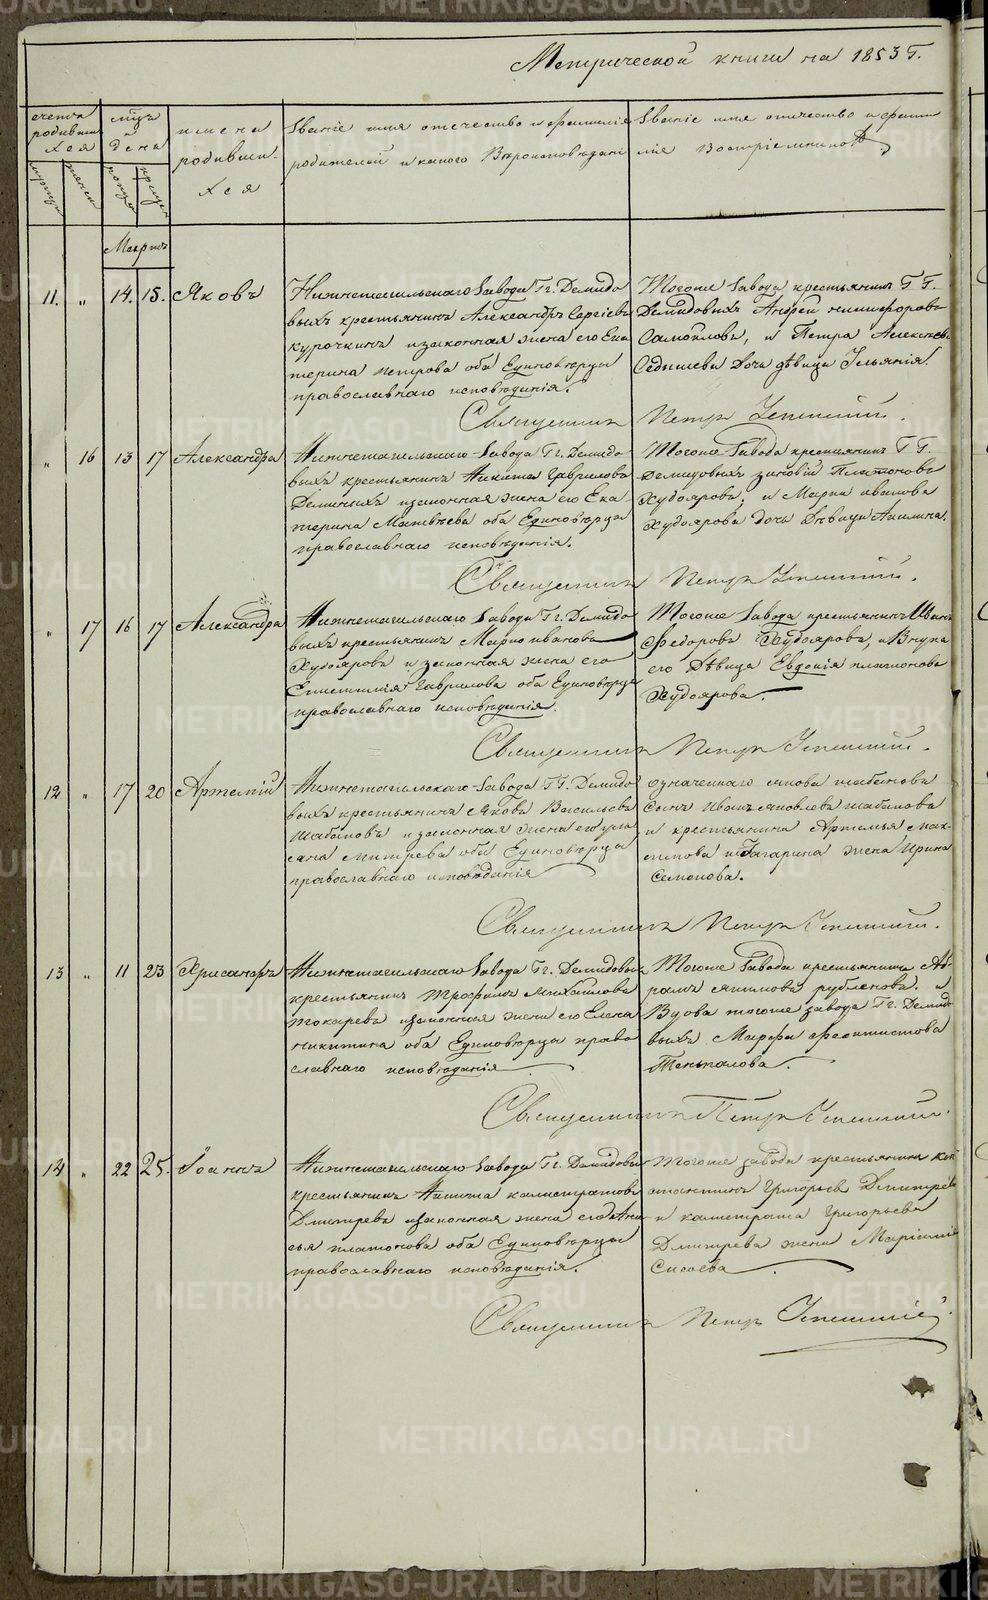 Метрической книги на 1853 Г.
счетъ родившихся
мужеска
женска
мѣсяцъ и день
рожден
крещен
имена родившихся
Званіе имя отечество и фамилія
родителей и какого Вѣроисповѣданія
Званіе имя отечество и фамилія
воспріемниковъ
Мартъ
11. " 14. 15. Яковъ
Нижнетагильскаго Завода Гг. Демидо
выхъ крестьянинъ Александръ Сергіевъ
Курочкинъ и законная жена его Ека
терина Петрова оба Единовѣрцы
православнаго исповѣданія.
Тогоже Завода крестьянинъ Г Г.
Демидовыхъ Андрей Никифоровъ
Самойловъ, и Петра Алексѣева
дочь дѣвица Ульянія.
Священникъ Петръ
" 16 13 17 Александра
Нижнетагильскаго Завода Гг. Демидо
выхъ крестьянинъ Никита Гавриловъ
и законная жена его Ека
терина Матвѣева оба Единовѣрцы
православнаго исповѣданія.
Тогоже Завода крестьянинъ Г Г.
Демидовыхъ Зиновій Платоновъ
Худояровъ, и Марка Иванова
Худоярова дочь Дѣвица Акилина.
Священникъ Петръ
" 17 16 17 Александра
Нижнетагильскаго Завода Гг. Демидо
выхъ крестьянинъ Марко Ивановъ
Худояровъ и законная жена его
Гаврилова оба Единовѣрцы
православнаго исповѣданія.
Тогоже Завода крестьянинъ Иванъ
Федоровъ Худояровъ, и Внука
его Дѣвица Евдокія Платонова
Худоярова.
Священникъ Петръ
12 " 17 20 Артемій
Нижнетагильскаго Завода Гг. Демидо
выхъ крестьянинъ Яковъ Васильевъ
Шабановъ и законная жена его Улья
сана Митрева оба Единовѣрцы
православнаго исповѣданія
означеннаго Якова Шабанова
сынъ Иванъ Яковлевъ Шабановъ
и крестьянина Артемья Мак-
симова Гагарина жена Ирина
Семенова.
Священникъ Петръ
13 " 11 23 Хрисанфъ
Нижнетагильскаго Завода Гг. Демидовыхъ
крестьянинъ Трофимъ Михайловъ
Токаревъ и законная жена его Елена
Никитина оба Единовѣрцы право
славнаго исповѣданія
Тогоже Завода крестьянинъ Ав-
рамъ Якимовъ Рублевъ. и
Вдова тогоже завода Гг. Демидо
выхъ Марфа Феоктистова
Священникъ Петръ
14 " 22 25. Іоаннъ
Нижнетагильскаго Завода Гг. Демидовыхъ
крестьянинъ Никита Калистратовъ
Дмитревъ и законная жена его Ани
сья Платонова оба Единовѣрцы
православнаго исповѣданія.
Тогоже Завода крестьянинъ Кон
стантинъ Григорьевъ Дмитревъ
и Калистрата Григорьева
Дмитрева жена
Сисоева
Священникъ Петръ
METRIKI.GASO-URAL.RU